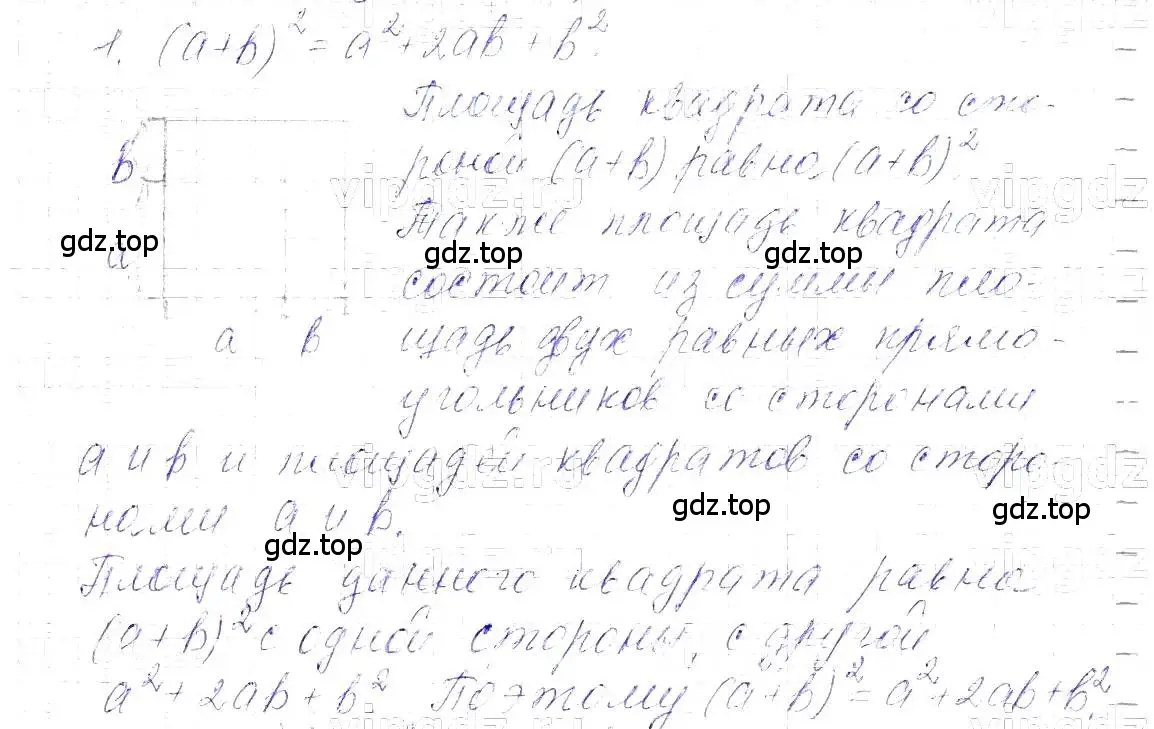 1. (a+b)² = a² + 2ab + b².
Площадь квадрата со сто-
b
роной (a+b) равна (a+b)².
vipgdz.ru
vipgdz
Также площадь квадрата
gdz.top
gdz.top
gdz.top
a
состоит из суммы пло-
a b
щадь двух равных прямо-
угольников со сторонами
a и b и площадей квадратов со сторо
vipgdz.ru
vipgdz
нами a и b.
gdz.top
gdz.top
gdz.top
Площадь данного квадрата равна
(a+b)² с одной стороны, с другой
a² + 2ab + b². Поэтому (a+b)² = a² + 2ab + b².